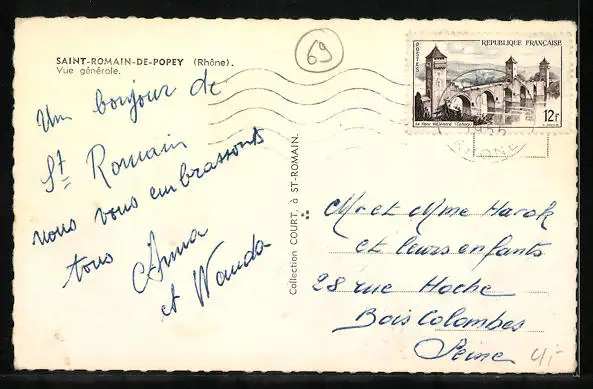 SAINT-ROMAIN-DE-POPEY (Rhône).
Vue générale.
69
Un bonjour de
St Romain
nous vous embrassons
tous
Anna
et Wanda
Collection COURT, à ST-ROMAIN.
REPUBLIQUE FRANÇAISE
POSTES
Le Pont Valentré (Cahors)
12F
RHONE
Mr et Mme Harok
et leurs enfants
28 rue Hoche
Bois Colombes
Seine
4/-